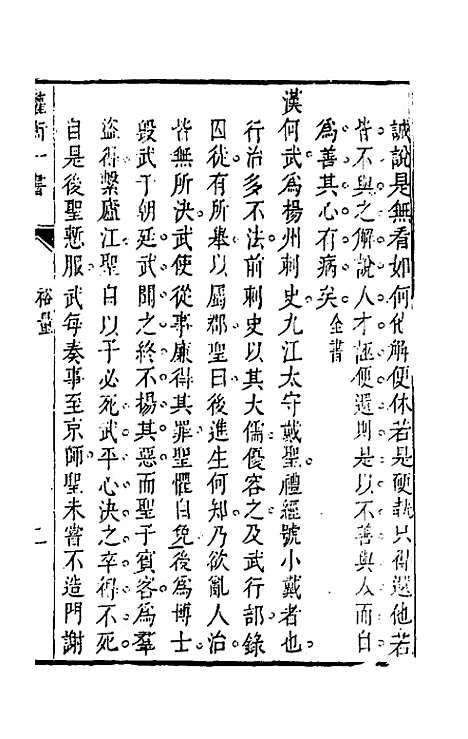 誠說是無看如何化解便休若是硬執只得還他若
皆不與之解說人才誣便還則是以不善與人而自
為善其心有病矣全書
漢何武為楊州刺史九江太守戴聖禮經號小戴者也
行治多不法前刺史以其大儒優容之及武行部錄
囚徒有所舉以屬郡聖曰後進生何知乃欲亂人治
皆無所決武使從事廉得其罪聖懼自免後為博士
毀武于朝廷武聞之終不揚其惡而聖子賓客為羣
盜得繫廬江聖自以子必死武平心決之卒得不死
自是後聖慙服武每奏事至京師聖未嘗不造門謝
一書
裕量
二